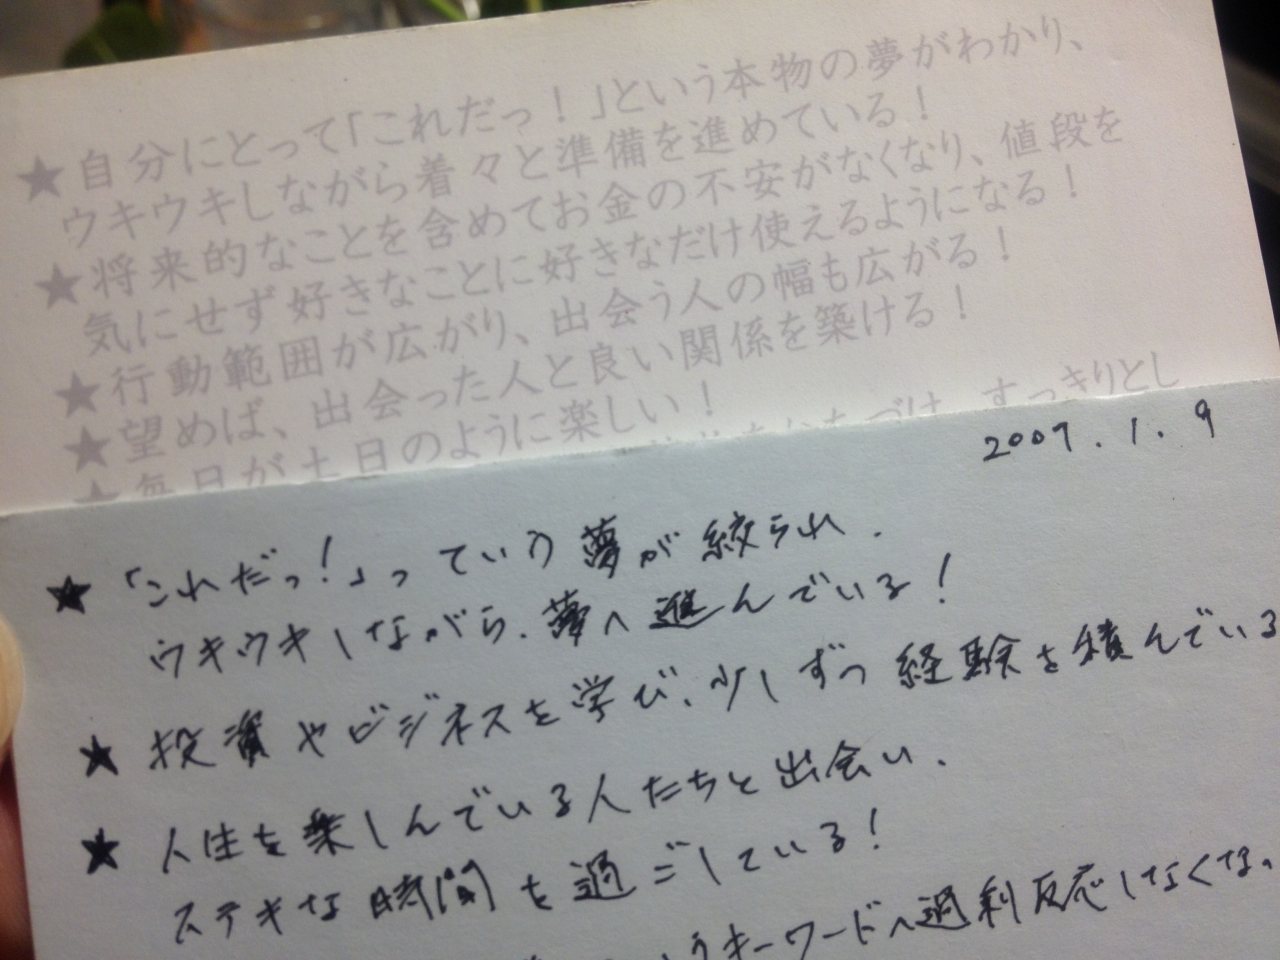 ★自分にとって「これだっ！」という本物の夢がわかり、
ウキウキしながら着々と準備を進めている！
★将来的なことを含めてお金の不安がなくなり、値段を
気にせず好きなことに好きなだけ使えるようになる！
★行動範囲が広がり、出会う人の幅も広がる！
★望めば、出会った人と良い関係を築ける！
★毎日が土日のように楽しい！
すっきりとし
2009.1.9
★「これだっ！」っていう夢が絞られ、
ウキウキしながら、夢へ進んでいる！
★投資やビジネスを学び、少しずつ経験を積んでいる
★人生を楽しんでいる人たちと出会い、
ステキな時間を過ごしている！
いうキーワードへ過剰反応しなくな